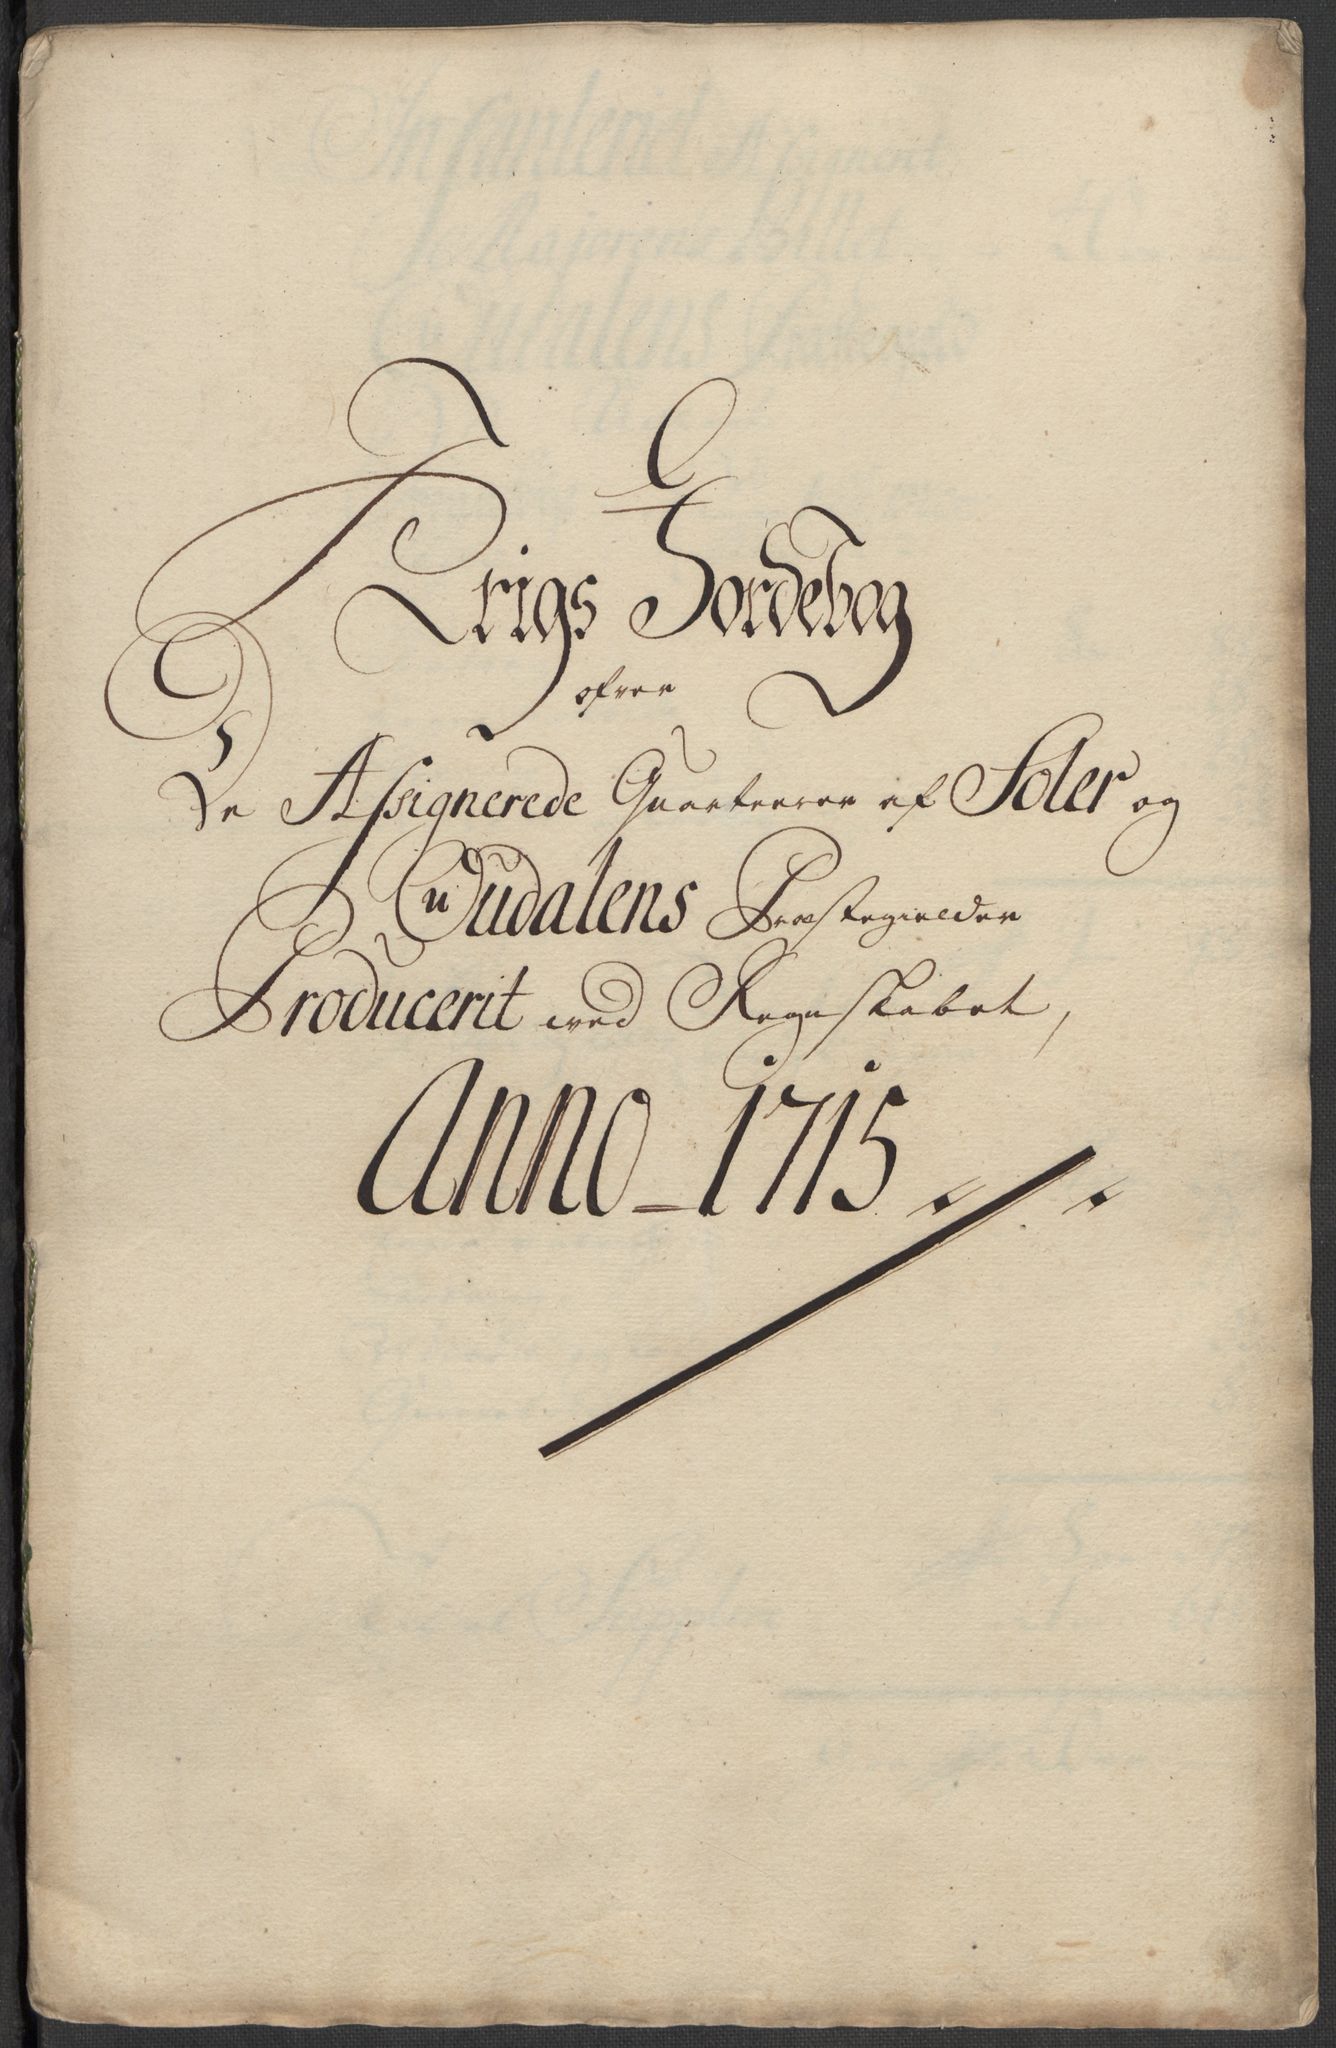 Krigs Jordebog
ofver
De Assignerede Quarteerer af Soler og
Oudalens Præstegielder
Producerit wed Regnskabet,
Anno 1715